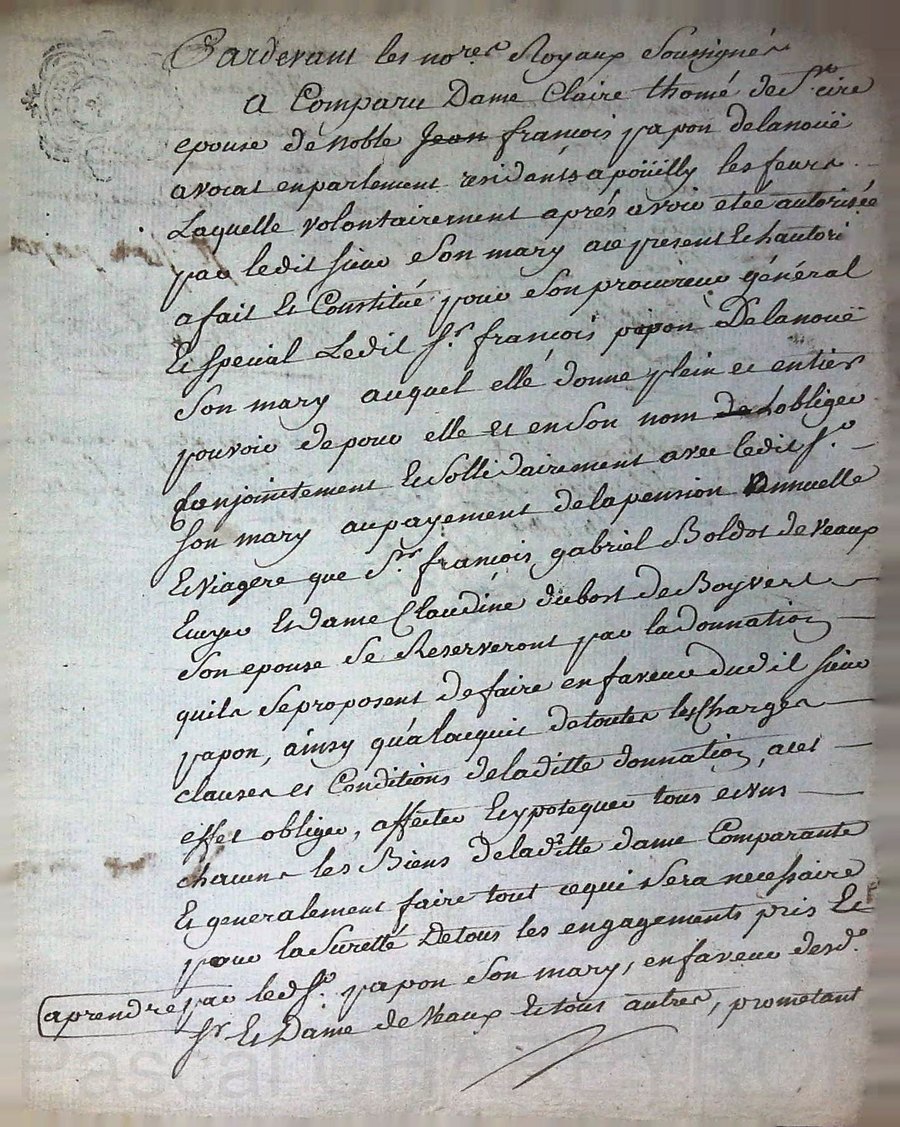 Pardevant les no.res Royaux Soussignés
A Comparu Dame Claire thomé de St cire
epouse de Noble Jean françois papon delanouë
avocat enparlement residents a poüilly les feurs
Laquelle volontairement aprés avoir etée autorisée
par ledit sieur Son mary ace present Et hautori
a fait Et Constitué pour Son procureur général
Et Special Ledit Sr. françois papon Delanouë
Son mary auquel elle donne plein et entier
pouvoir de pour elle et en Son nom de L'obliger
Conjointement Et Sollidairement avec ledit Sr.
Son mary aupayement delapension Annuelle
Et Viagere que Sr. françois gabriel Boldot de Veaux
Ecuyer Et dame Claudine dubost de Boyvert
Son epouse Se Reserveront par la donnation
quils Seproposent defaire enfaveur dudit Sieur
papon, ainsy qu'alacquit detoutes les Charges
clauses et Conditions deladitte donnation, acet
effet obliger, affecter Et ypotequer tous et vns
chacuns les Biens deladitte dame Comparante
Et generalement faire tout cequi Sera necessaire
pour laSuretté Detous les engagements pris Et
aprendre par led Sr. papon Son mary, enfaveur desd.
Sr Et Dame de Veaux Et tous autres, prometant
Pascal CHALEYRON